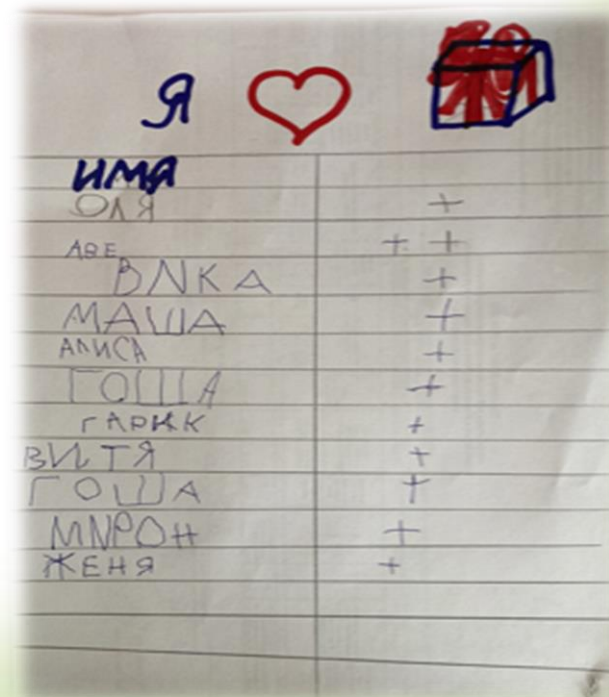 Я
ИМЯ
ОЛЯ +
АВЕ + +
ВИКА +
МАША +
АЛИСА +
ГОША +
ГАРИК +
ВИТЯ +
ГОША +
МИРОН +
ЖЕНЯ +